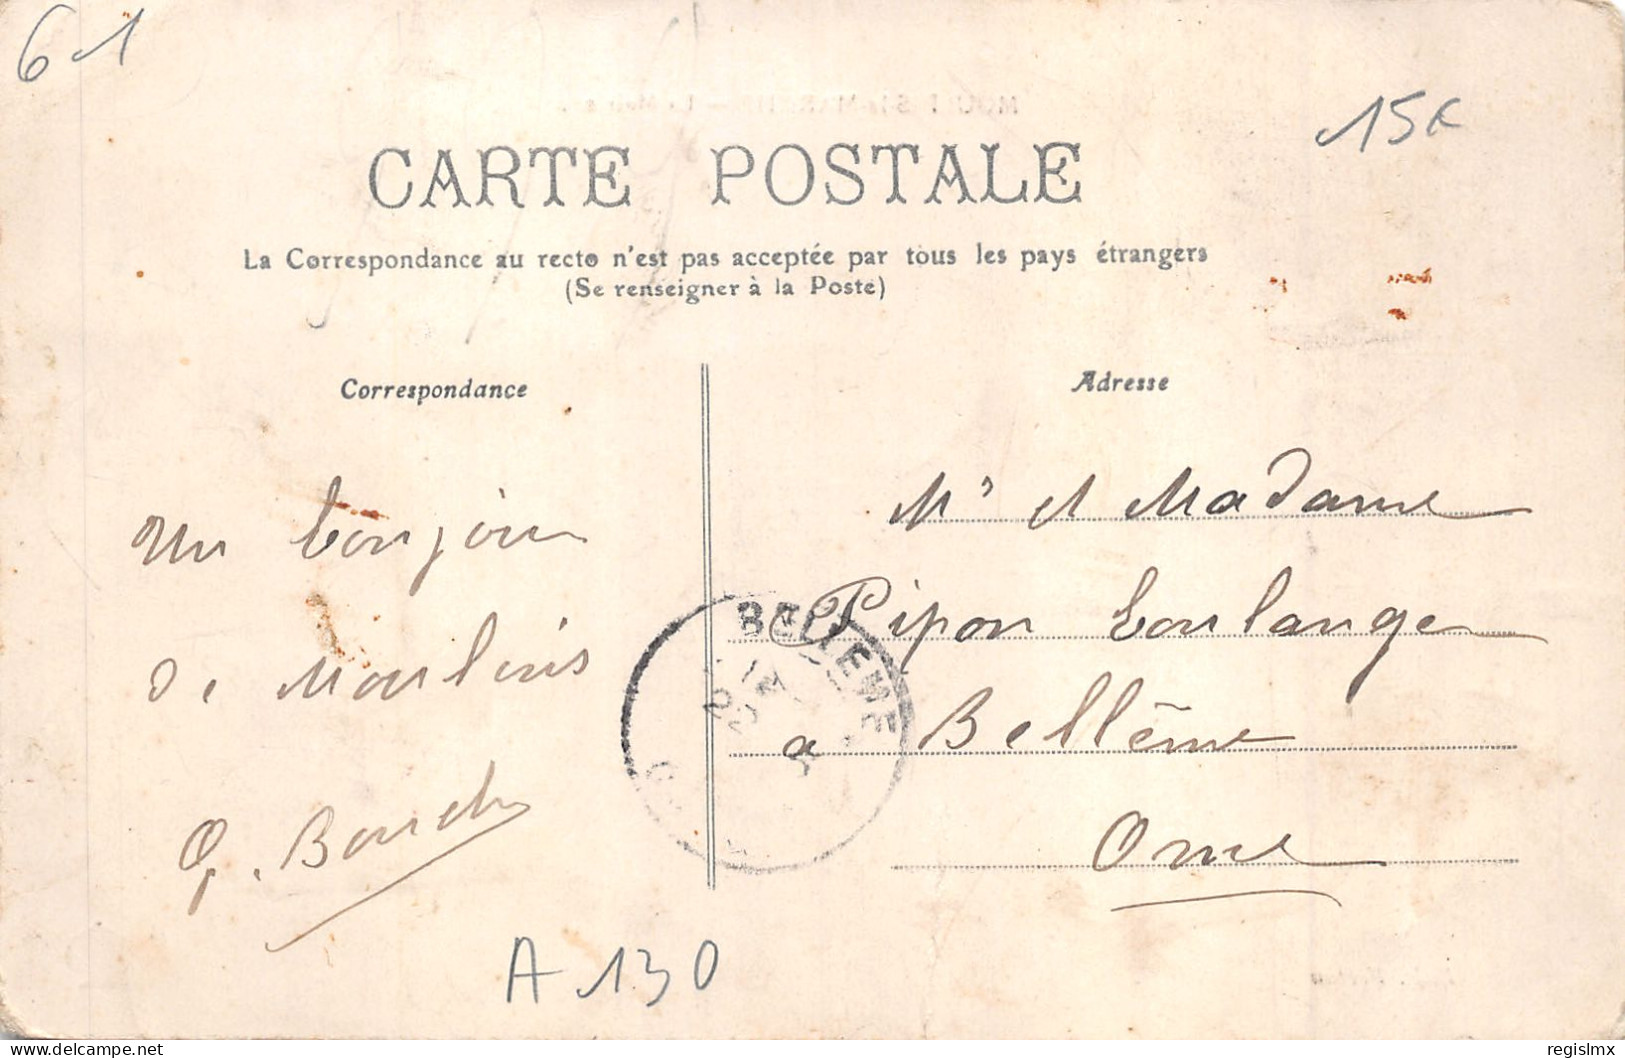 61
15€
CARTE POSTALE
La Correspondance au recto n'est pas acceptée par tous les pays étrangers
(Se renseigner à la Poste)
Correspondance
Adresse
Un bonjour
de Moulins
Mr et Madame
Pipon boulanger
a Bellême
Orne
BELLEME
A130
www.delcampe.net
regislmx